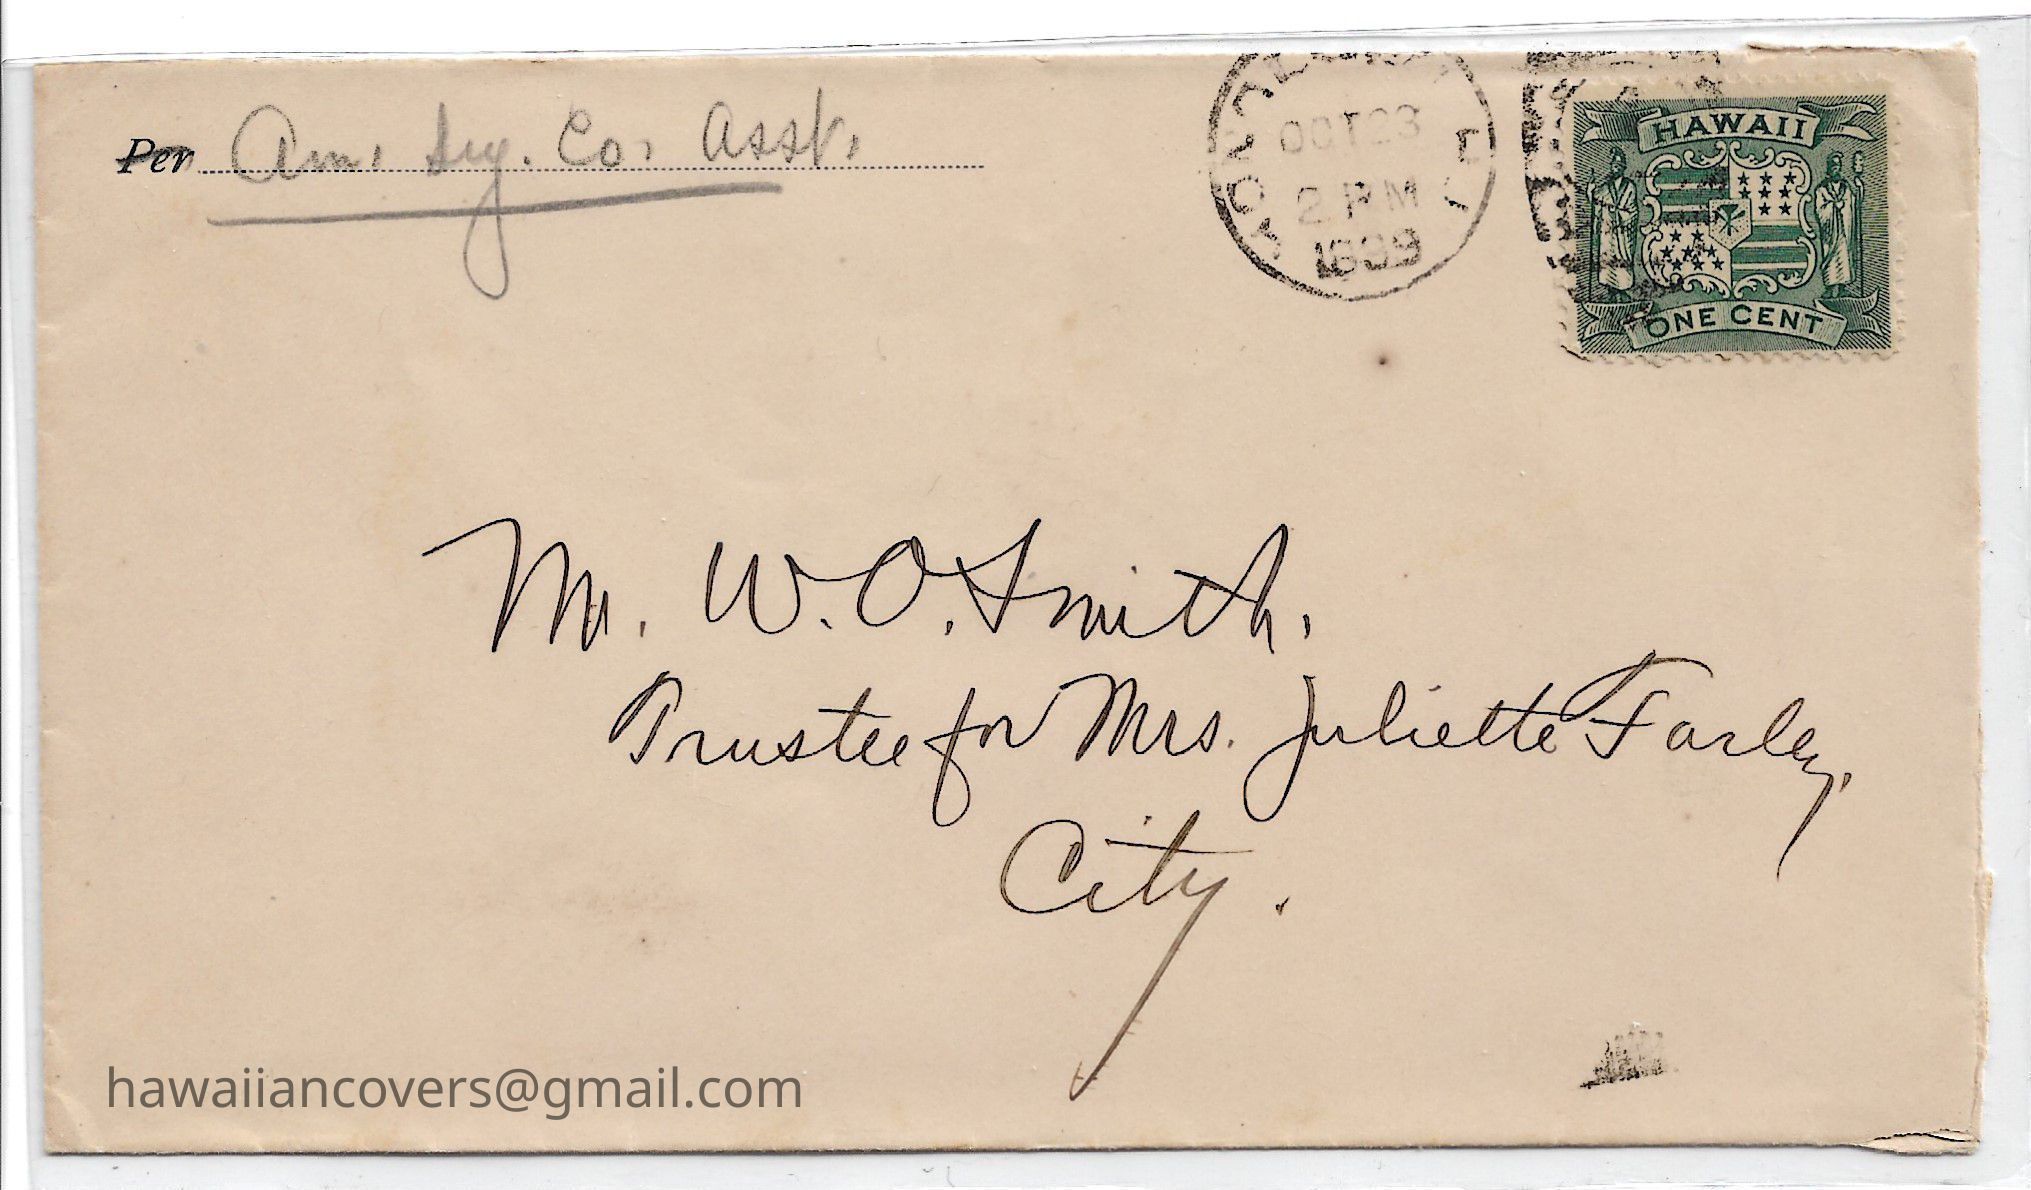 Per Am. Sug. Co. Asst.
HONOLULU
OCT 23
2 PM
1899
HAWAII
ONE CENT
Mr. W. O. Smith.
Trustee for Mrs. Juliette Farley,
City.
hawaiiancovers@gmail.com